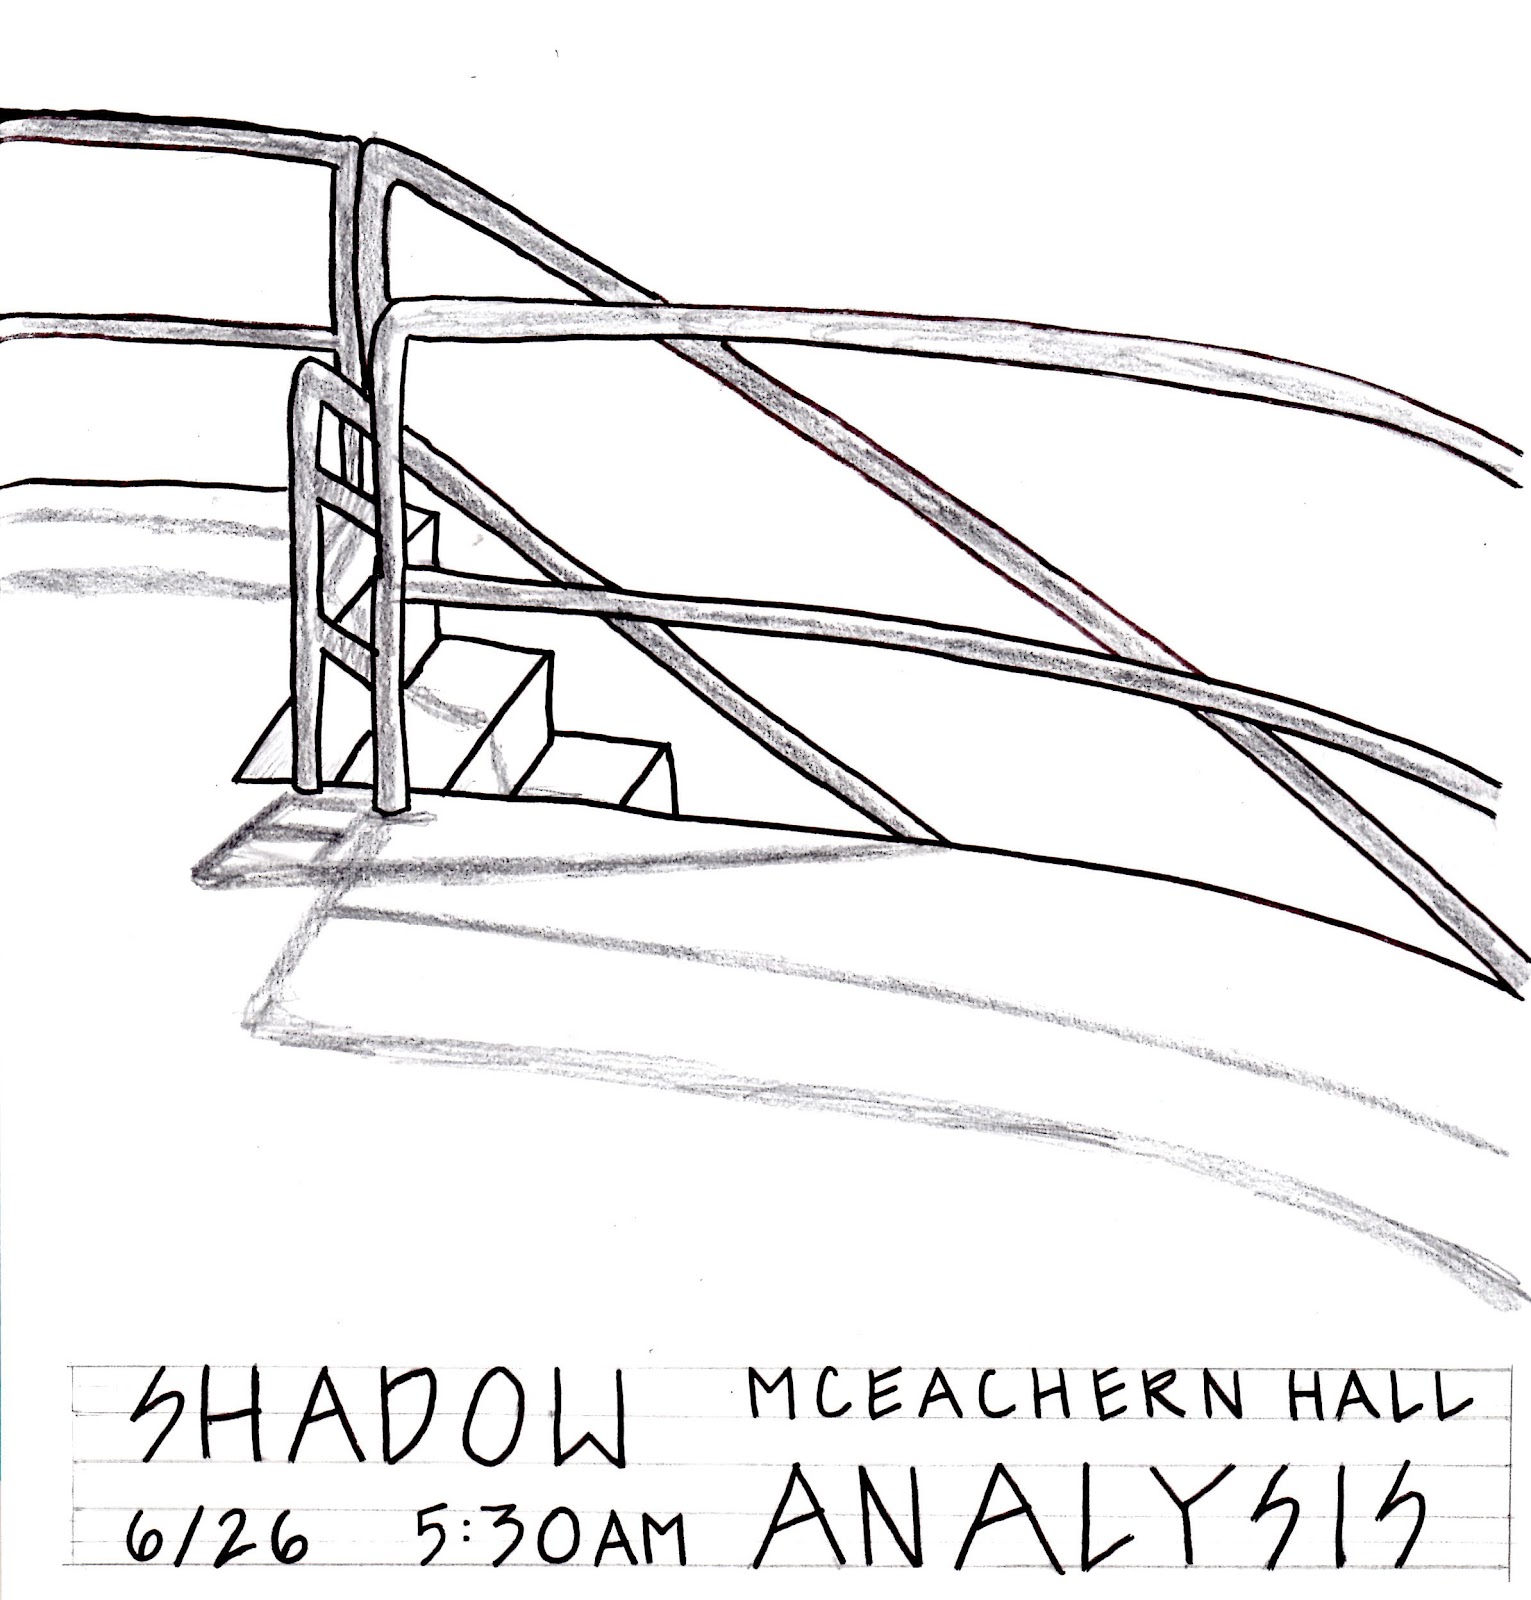 SHADOW MCEACHERN HALL
6/26 5:30AM ANALYSIS